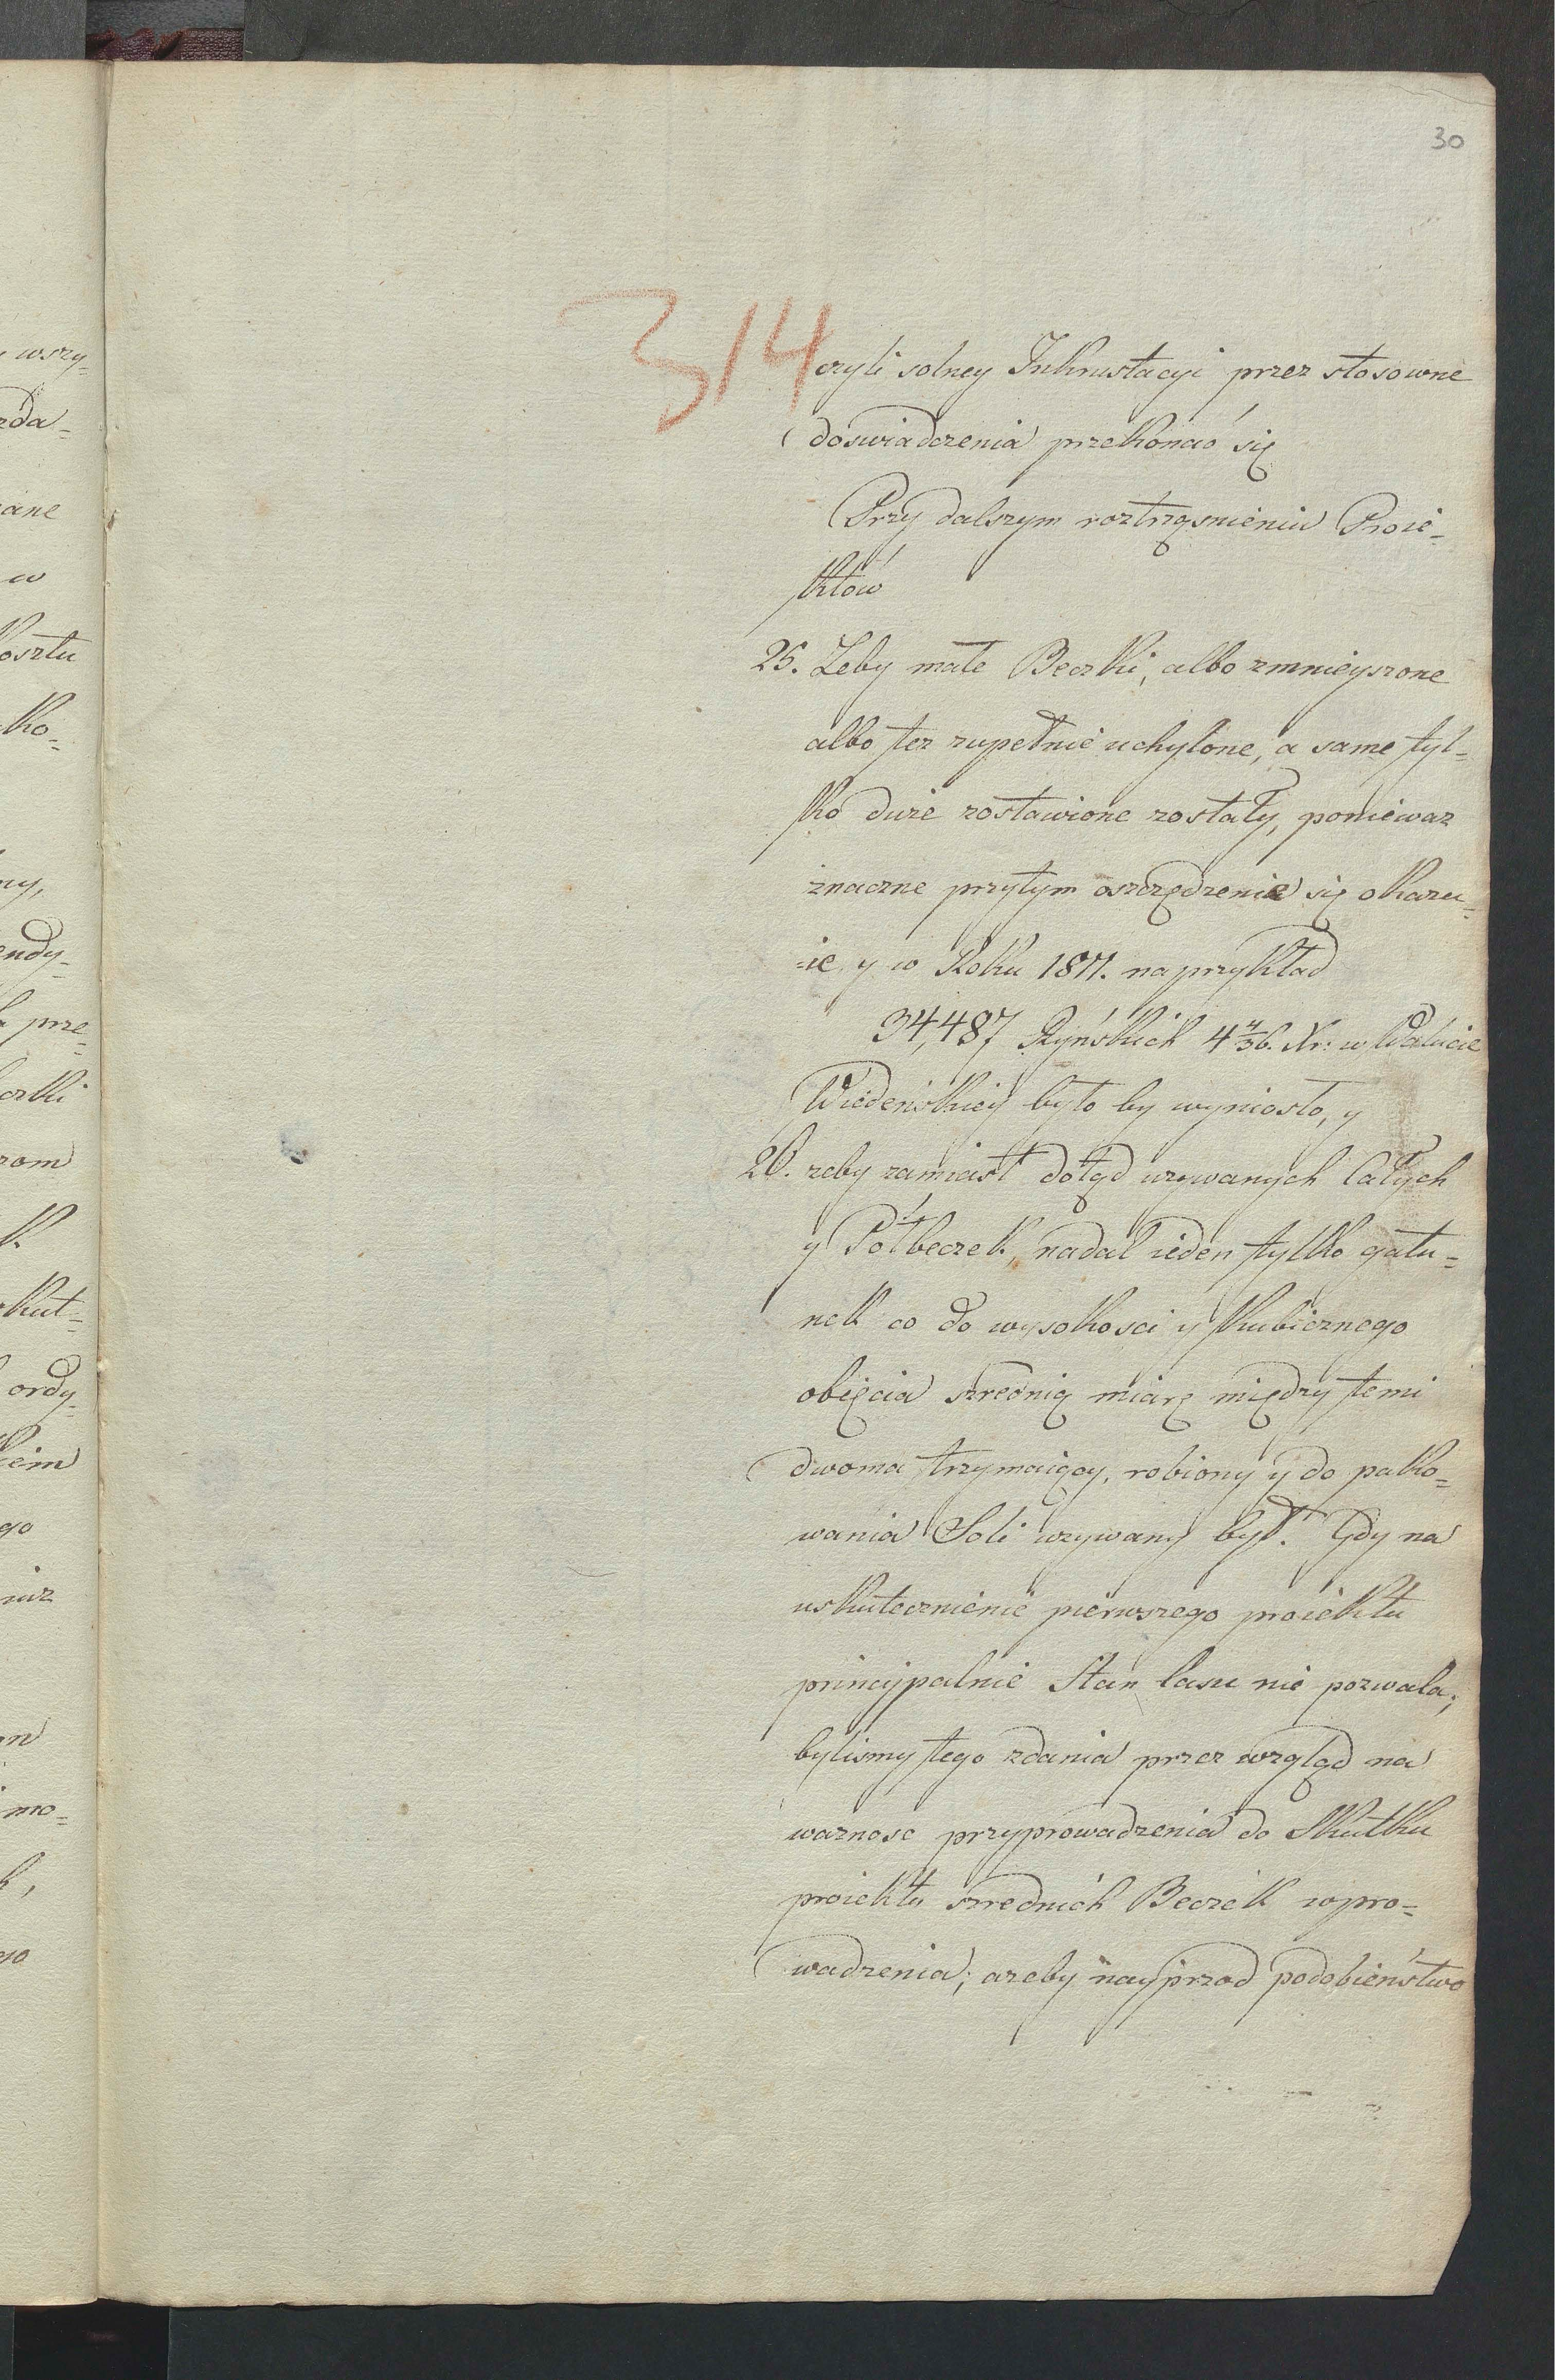 30
314
czyli solney Inkrustacyi przez stosowne
doswiadczenia przekonać się
Przy dalszym roztrząsnieniu Proie-
któw
25. Zeby małe Beczki, albo zmnieyszone
albo tez zupełnie uchylone, a same tyl-
ko duże zostawione zostały, poniewaz
znaczne przytym oszczędzenie się okazu-
-ie, y w Roku 1811. na przykład
34,487 Ryńskich 4 4/36. Xr: w Walucie
Wiedeńskiey było by wyniosło, y
26. zeby zamiast dotąd uzywanych Całych
y Półbeczek, nadal ieden tylko gatu-
nek co do wysokosci y kubicznego
obięcia szrednią miarę między temi
dwoma trzymaiący, robiony y do pako-
wania Soli uzywany był. Gdy na
uskutecznienie pierwszego proiektu
principalnie Stan lasu nie pozwala;
bylismy tego zdania przez wzgląd na
waznosc przyprowadzenia do Skutku
proiektu szrednich Beczek wpro-
wadzenia; azeby nayprzod podobieństwo
wszy-
zda-
ane
w
kosztu
ko-
ny,
endy-
prze-
czki
zom
k.
kut-
ordy-
kiem
go
iuz
on
mo-
h,
go